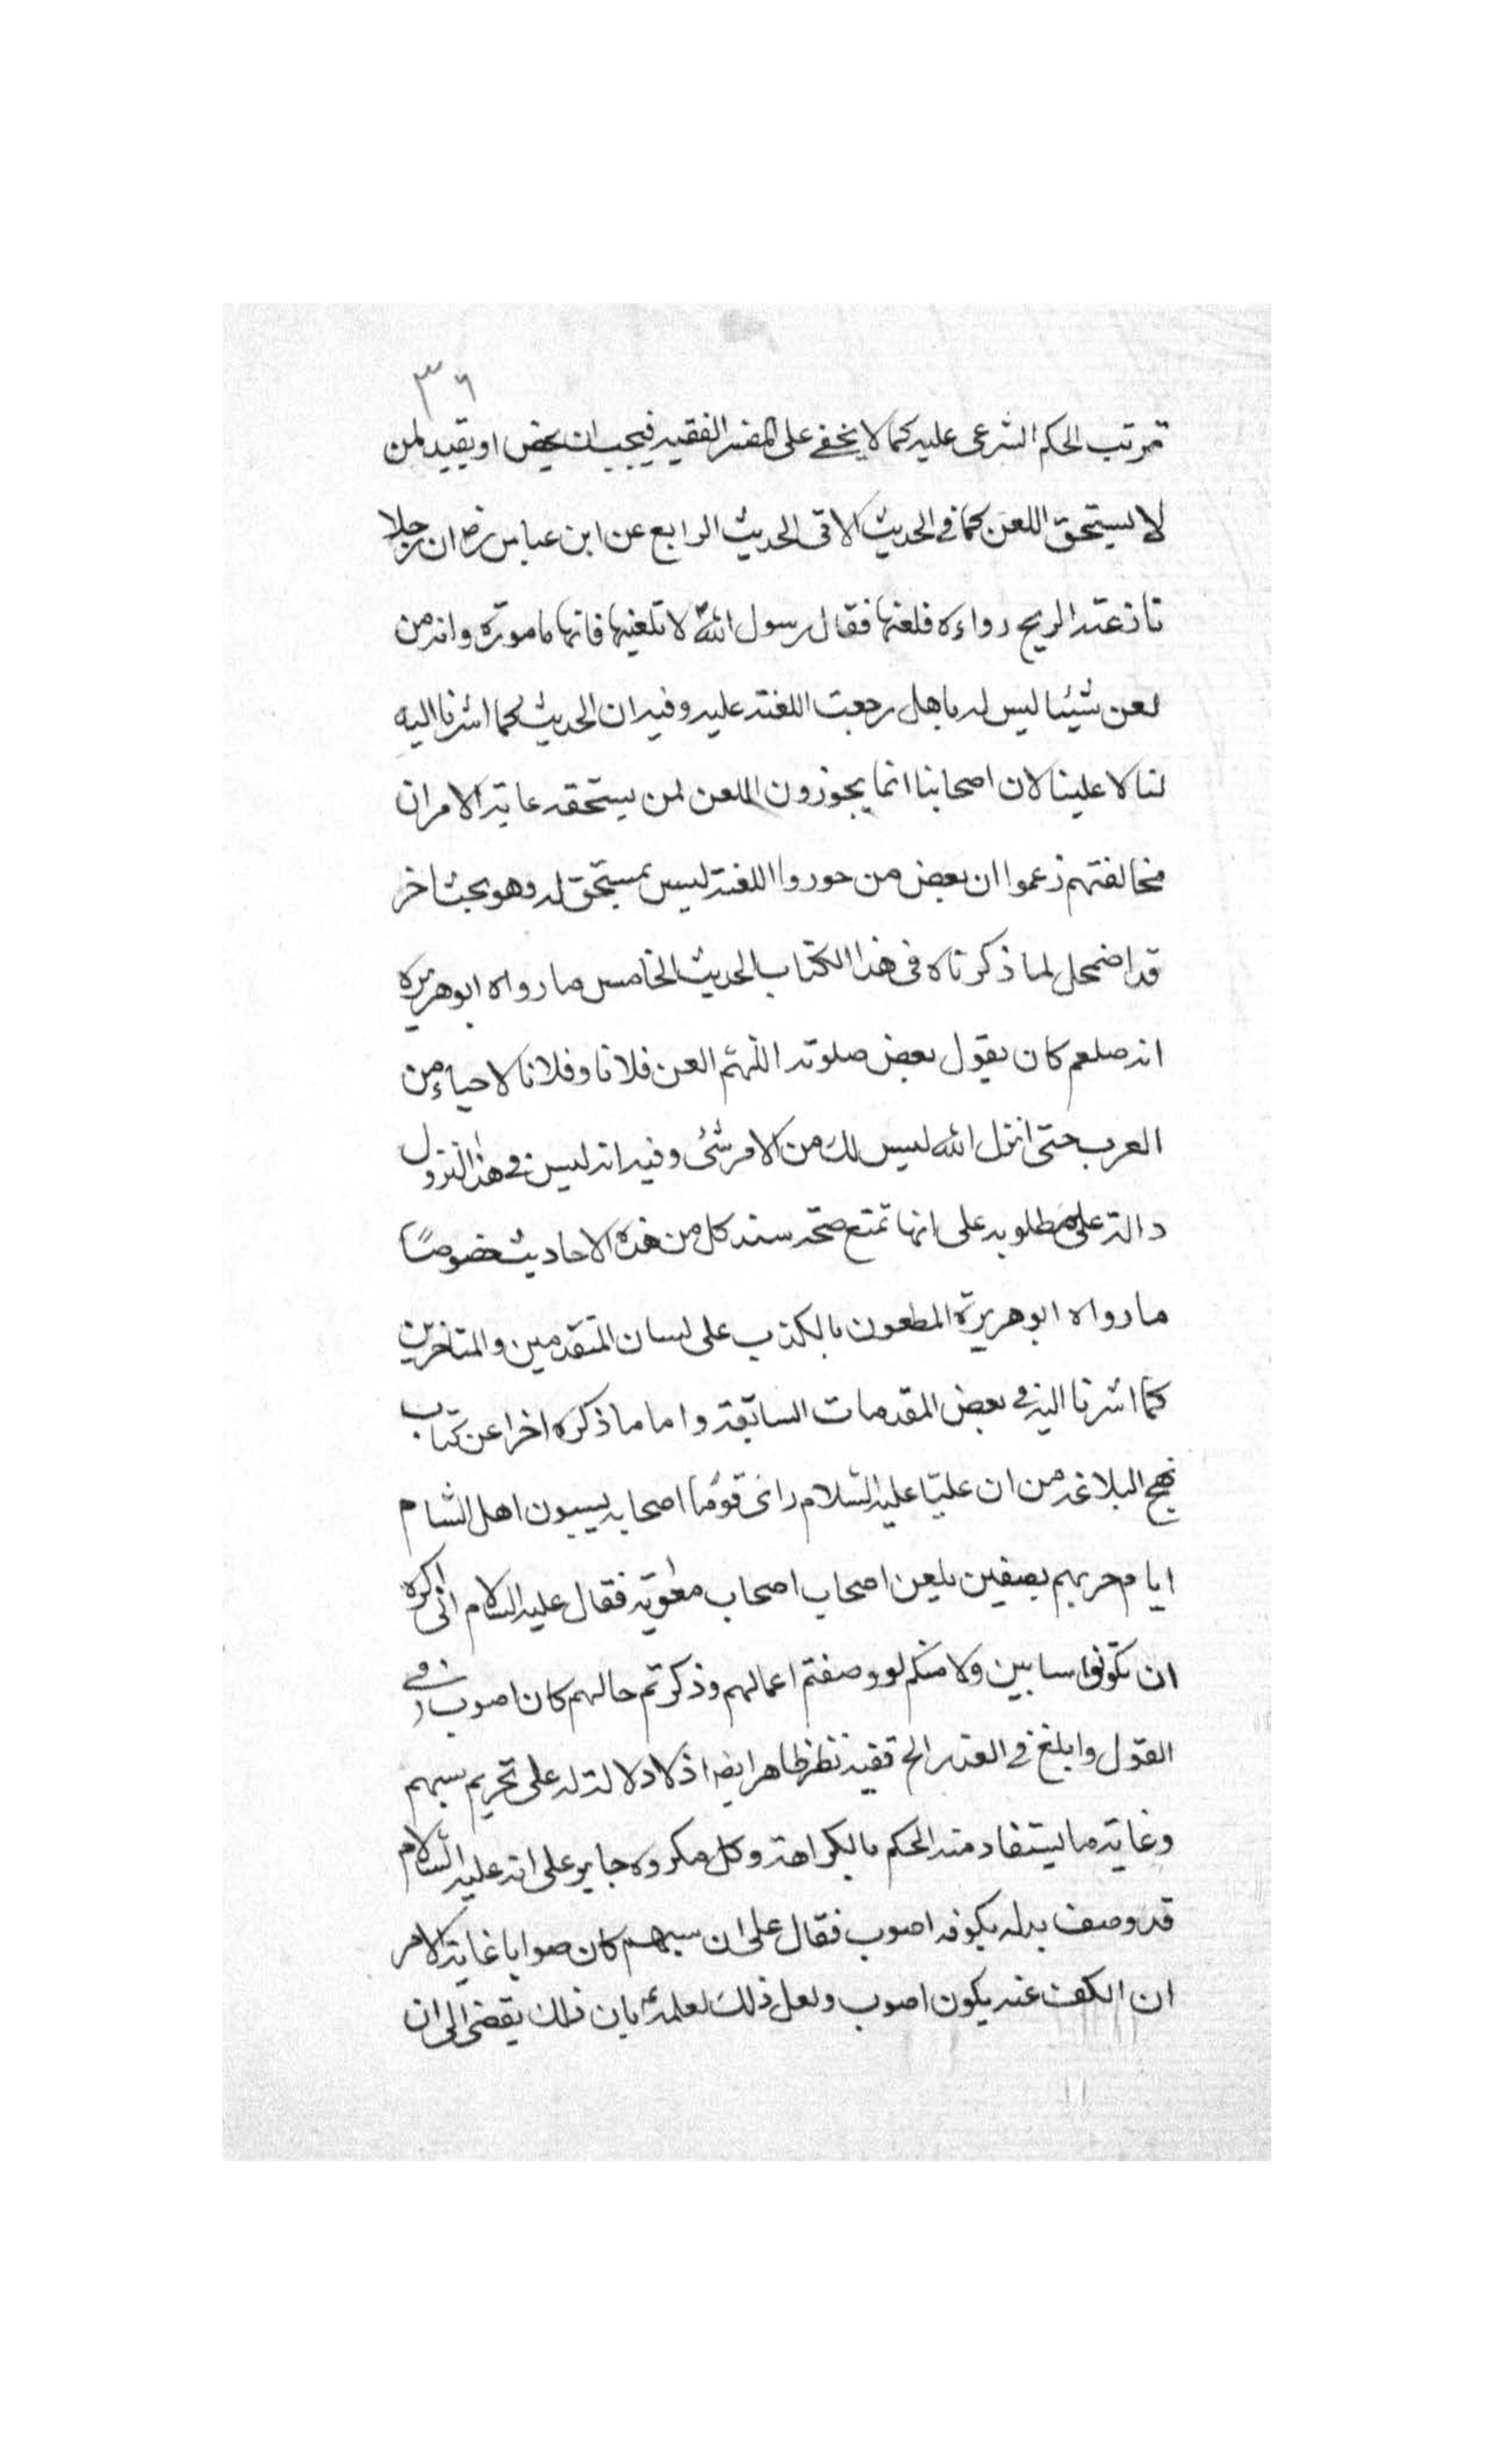 ٣٦
ترتب الحكم الشرعى عليه كما لا يخفى على المفسر الفقيه فيجب ان يخص او يقيد لمن
لا يستحق اللعن كما فى الحديث الاتى الحديث الرابع عن ابن عباس رض ان رجلا
نازعته الريح رداءه فلعنها فقال رسول الله لا تلعنها فانها مامورة وانه من
لعن شيئا ليس له باهل رجعت اللعنة عليه وفيه ان الحديث كما اشرنا اليه
لنا لا علينا لان اصحابنا انما يجوزون اللعن لمن يستحقه غاية الامر ان
مخالفتهم زعموا ان بعض من جوروا اللعنة ليس بمستحق له وهو بحث اخر
قد اضمحل لما ذكرناه فى هذا الكتاب الحديث الخامس ما رواه ابو هريرة
انه صلعم كان يقول بعض صلوته اللهم العن فلانا وفلانا لاحياء من
العرب حتى انزل الله ليس لك من الامر شئ وفيه انه ليس فى هذا النزول
دالة على مطلوبه على انها تمتع صحة سند كل من هذه الاحاديث خصوصًا
ما رواه ابو هريرة المطعون بالكذب على لسان المتقدمين والمتاخرين
كما اشرنا اليه فى بعض المقدمات السابقة واما ما ذكره اخرا عن كتاب
نهج البلاغه من ان عليّا عليه السّلام رائ قومًا اصحابه يسبون اهل الشام
ايام حربهم بصفين بلعن اصحاب اصحاب معوية فقال عليه السلام انى اكره
ان تكونوا سابين ولا منكم لو وصفتم اعمالهم وذكرتم حالهم كان اصوب فى
القول وابلغ فى العذر الخ ففيه نظر ظاهر ايضا اذ لا دلالة له على تحريم سبهم
وغاية ما يستفاد منه الحكم بالكراهة وكل مكروه جايز على انه عليه السّلام
قد وصف بدله بكونه اصوب فقال على ان سبهم كان صوابا غاية الامر
ان الكف عنه يكون اصوب ولعل ذلك لعلمه ع بان ذلك يقضى الى ان